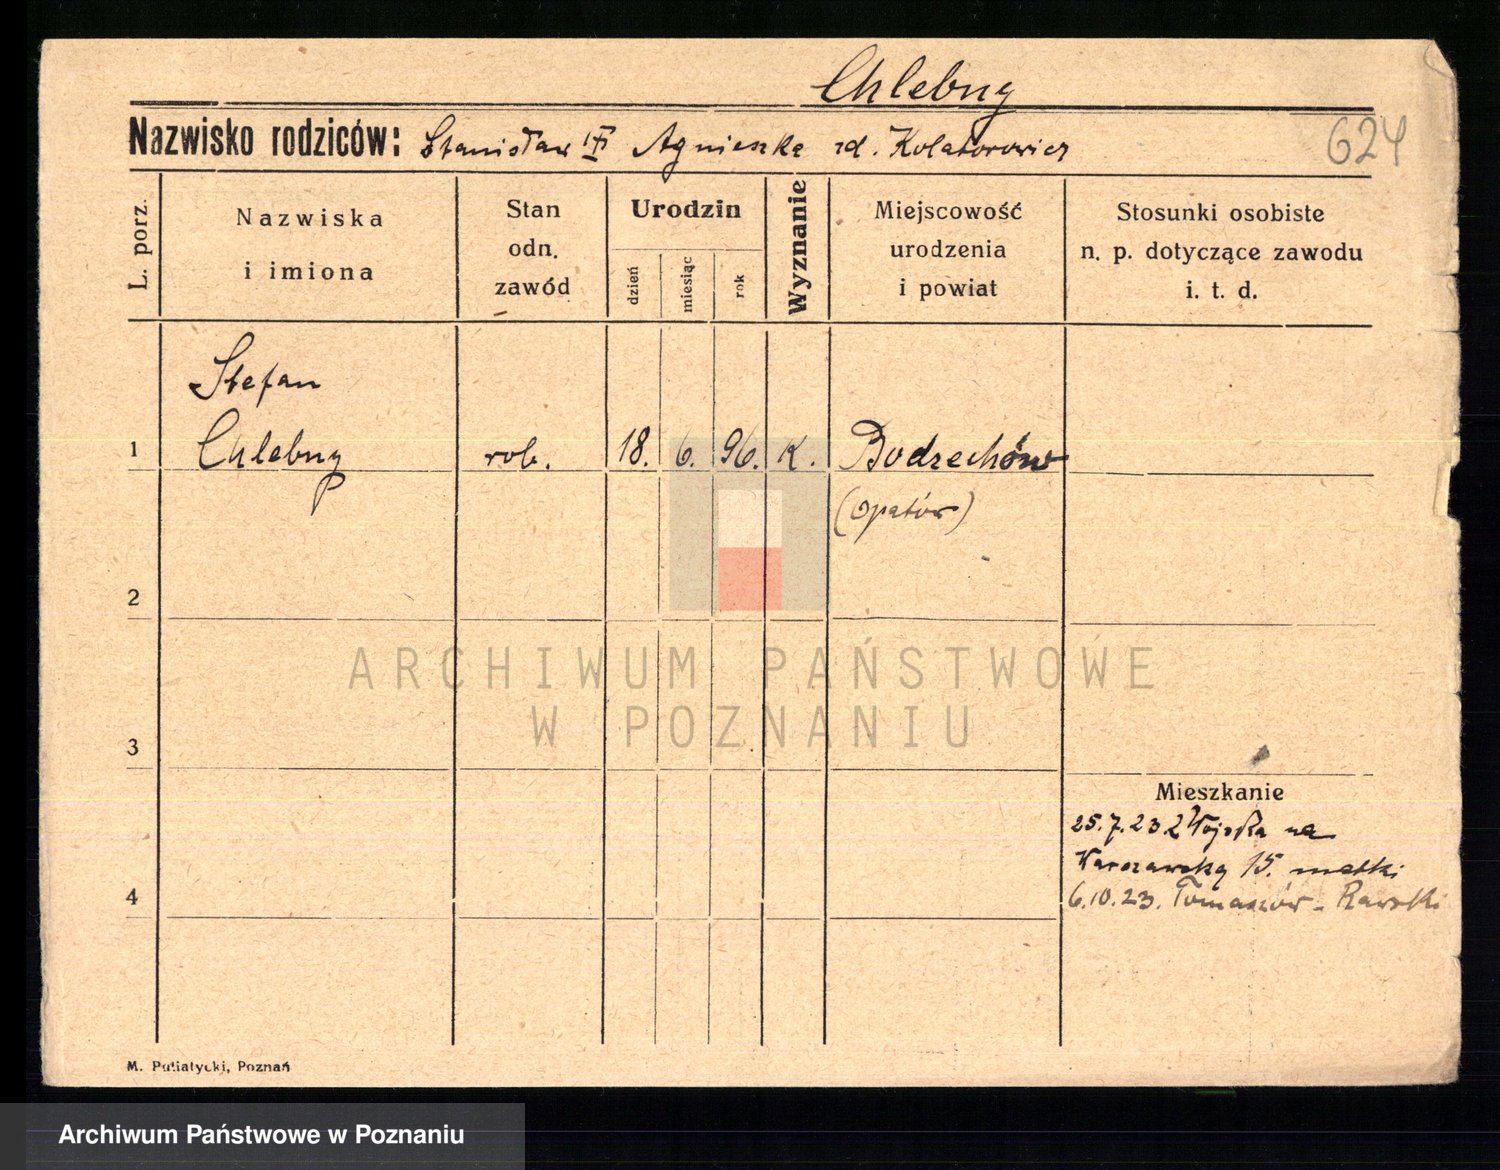 Chlebny
Nazwisko rodziców: Stanisław Agnieszka zd. Kolatorowicz
624
L. porz.
Nazwiska
i imiona
Stan
odn.
zawód
Urodzin
dzień
miesiąc
rok
Wyznanie
Miejscowość
urodzenia
i powiat
Stosunki osobiste
n. p. dotyczące zawodu
i. t. d.
Stefan
1 Chlebny rob. 18. 6. 96. K. Bodzechów
(Opatów)
2
3
Mieszkanie
25.7.23 z Wojska na
Warszawską 15. matki
4 6.10.23. Tomaszów - Rawski
M. Putiatycki, Poznań
ARCHIWUM PAŃSTWOWE
W POZNANIU
Archiwum Państwowe w Poznaniu